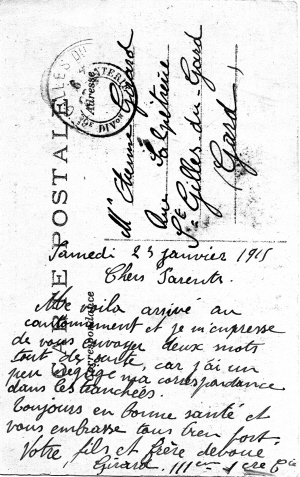 CARTE POSTALE
Correspondance
Adresse
Mr Etienne Girard
Rue Salpêtrière
St Gilles-du-Gard
(Gard)
Samedi 23 janvier 1915
Chers Parents
Me voila arrivé au
cantonnement et je m'empresse
de vous envoyer deux mots
tout de suite, car j'ai un
peu négligé ma correspondance
dans les tranchées.
Toujours en bonne santé et
vous embrasse tous bien fort.
Votre fils et frère dévoué
Girard. 111em 1ere Cie